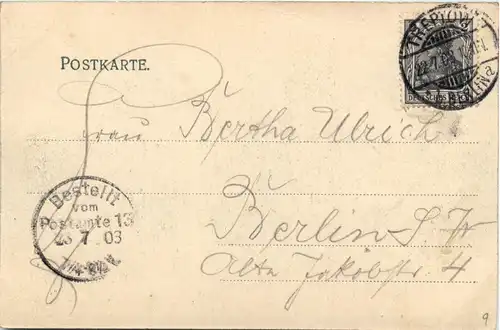 POSTKARTE.
TREPTOW
22.7.03
BERLIN
Frau Bertha Ulrich
Berlin S. W
Alte Jakobstr 4
Bestellt
vom
Postamte 13
23 7 03
9